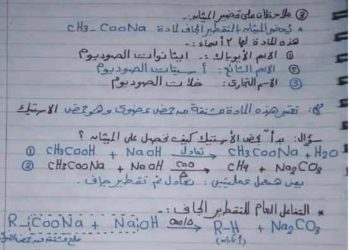 ③ ملاحظات على تحضير الميثان:
* يُحضر الميثان بالتقطير الجاف لمادة CH3-CooNa
هذه المادة لها ٣ أسماء:
① الاسم الأيوباك :- ايثانوات الصوديوم
② الاسم الشائع :- أسيتات الصوديوم
③ الاسم التجارى: خلات الصوديوم
تعتبر هذه المادة مشتقة من حمض عضوى وهو حمض الاستيك
سؤال: بدأ حمض الأستيك كيف تحصل على الميثان ؟
① CH3CooH + NaoH تعادل → CH3CooNa + H2O
② CH3CooNa + NaoH CaO → CH4 + Na2CO3
تعادل ثم تقطير جاف
* التفاعل العام للتقطير الجاف:
R-CooNa + NaoH → R-H + Na2CO3